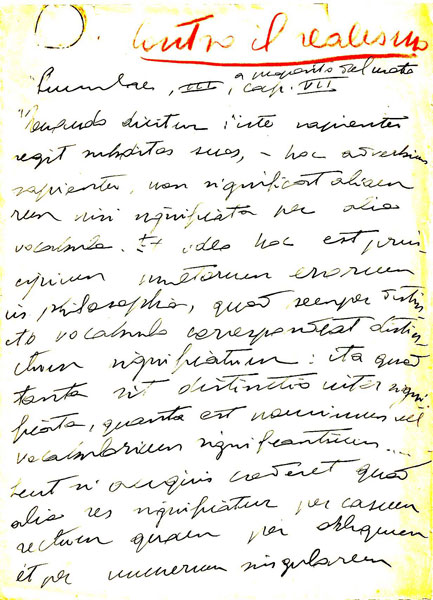 Contro il realismo
a proposito del moto
Summulae, III, cap. VII
"Quando dicitur: iste sapienter
regit subditos suos, – hoc adverbium
sapienter, non significat aliam
rem nisi significata per alia
vocabula. Et ideo hoc est prin-
cipium multorum errorum
in philosophia, quod semper distinc
to vocabulo correspondeat distinc
tum significatum: ita quod
tanta sit distinctio inter signi
ficata, quanta est nominum vel
vocabulorum significantium....
sicut si aliquis crederet quod
alia res significatur per casum
rectum quam per obliquum
et per numerum singularem